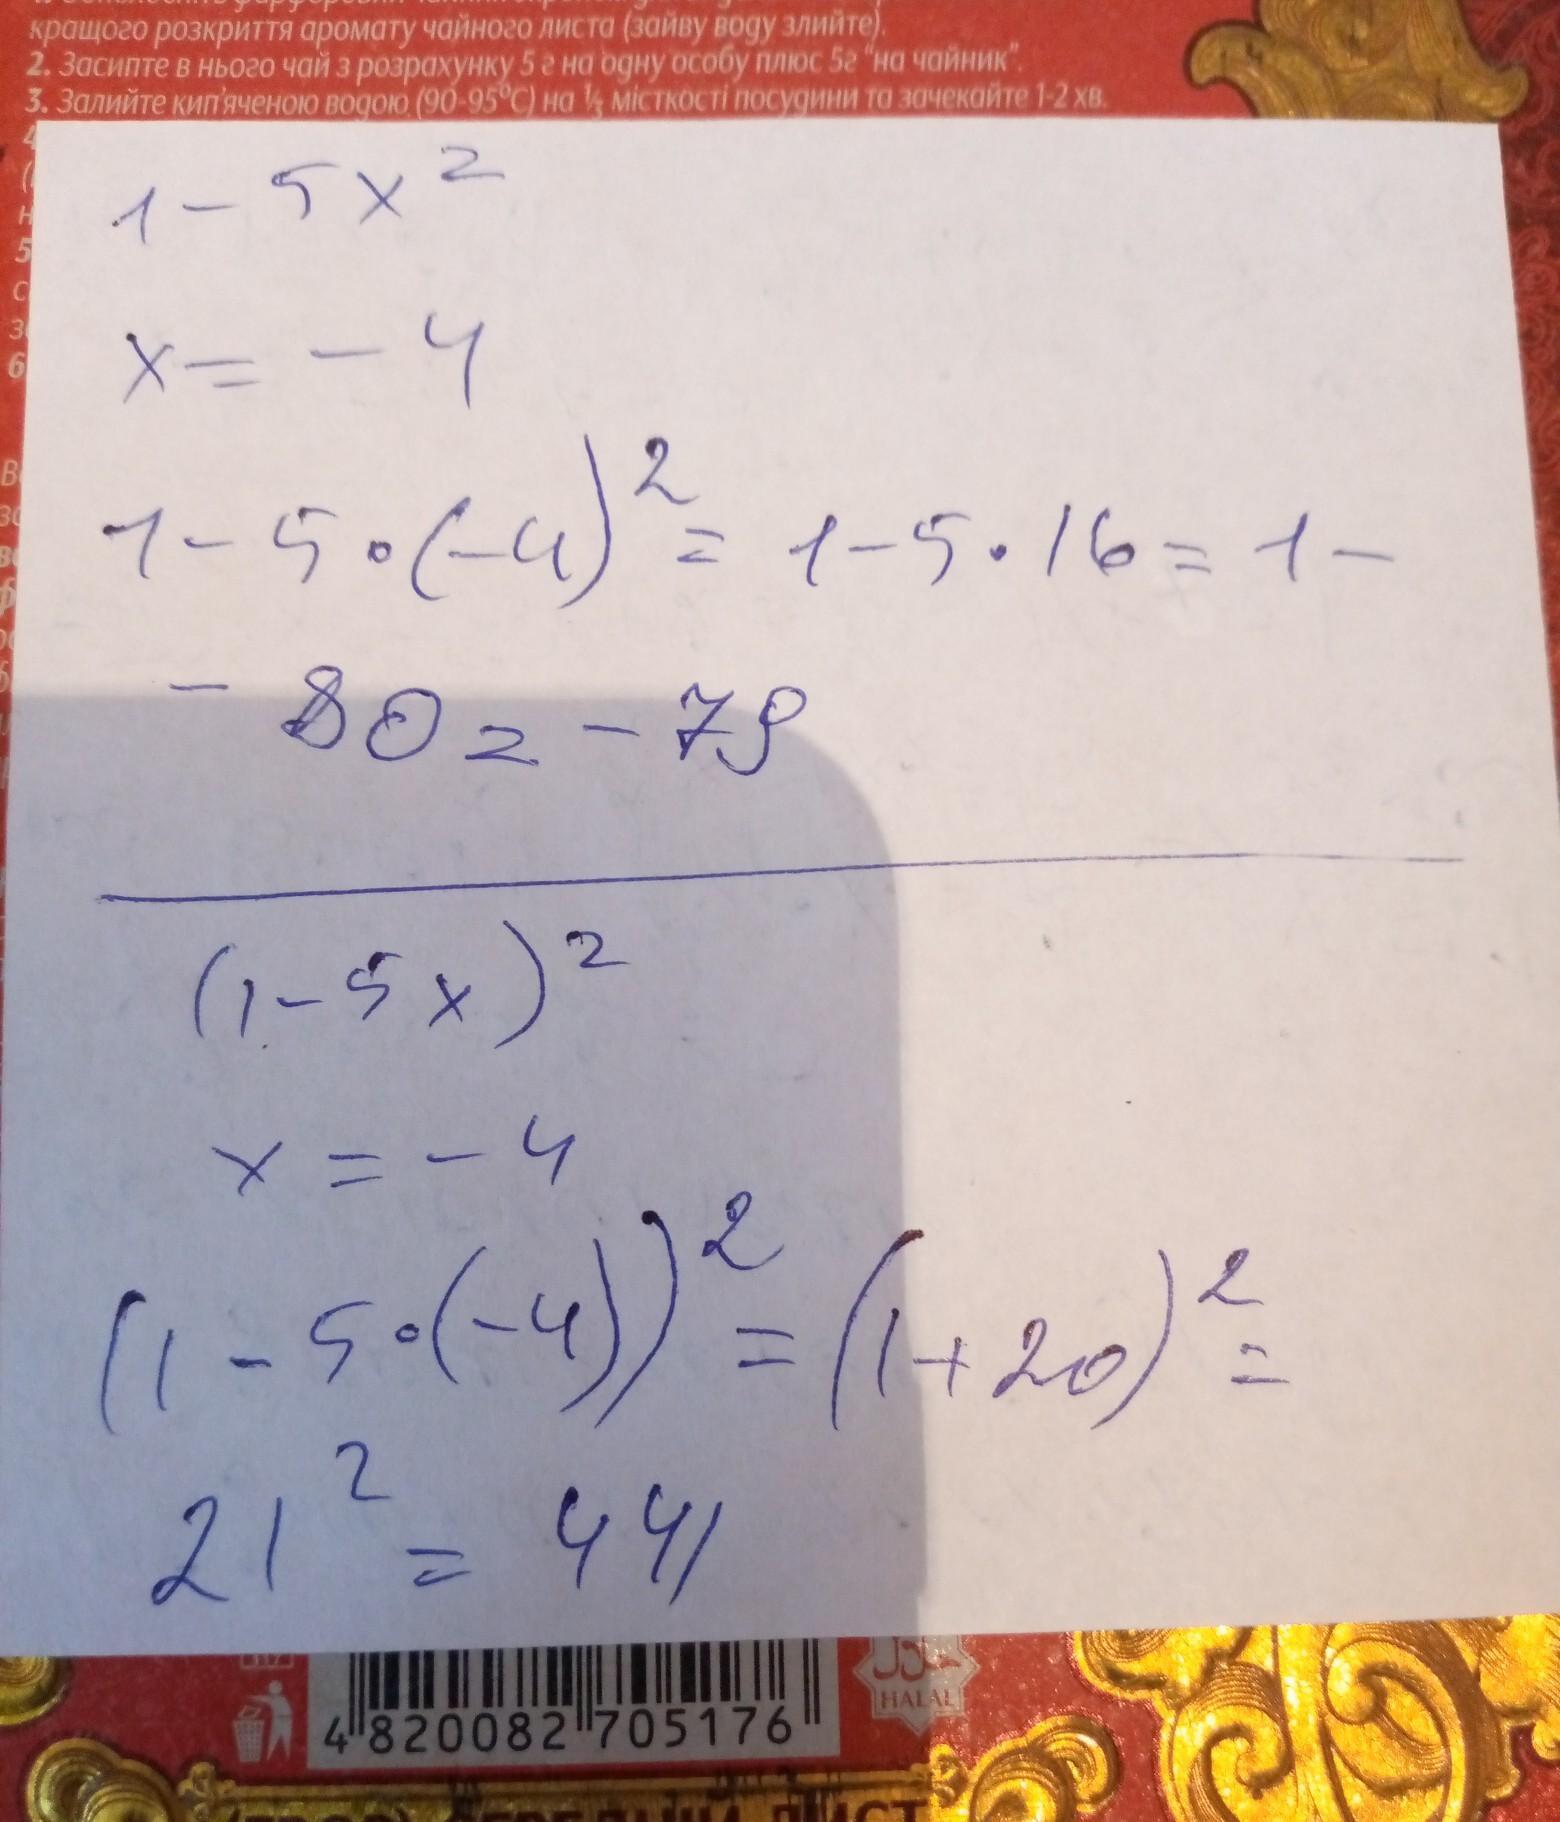 кращого розкриття аромату чайного листа (зайву воду злийте).
2. Засипте в нього чай з розрахунку 5 г на одну особу плюс 5г "на чайник".
3. Залийте кип'яченою водою (90-95°C) на ⅓ місткості посудини та зачекайте 1-2 хв.
1 - 5x²
x = - 4
1 - 5 • (-4)² = 1 - 5 • 16 = 1 -
- 80 = - 79
(1 - 5x)²
x = - 4
(1 - 5 • (-4))² = (1 + 20)² =
21² = 441
HALAL
4 820082 705176
ЛИСТ